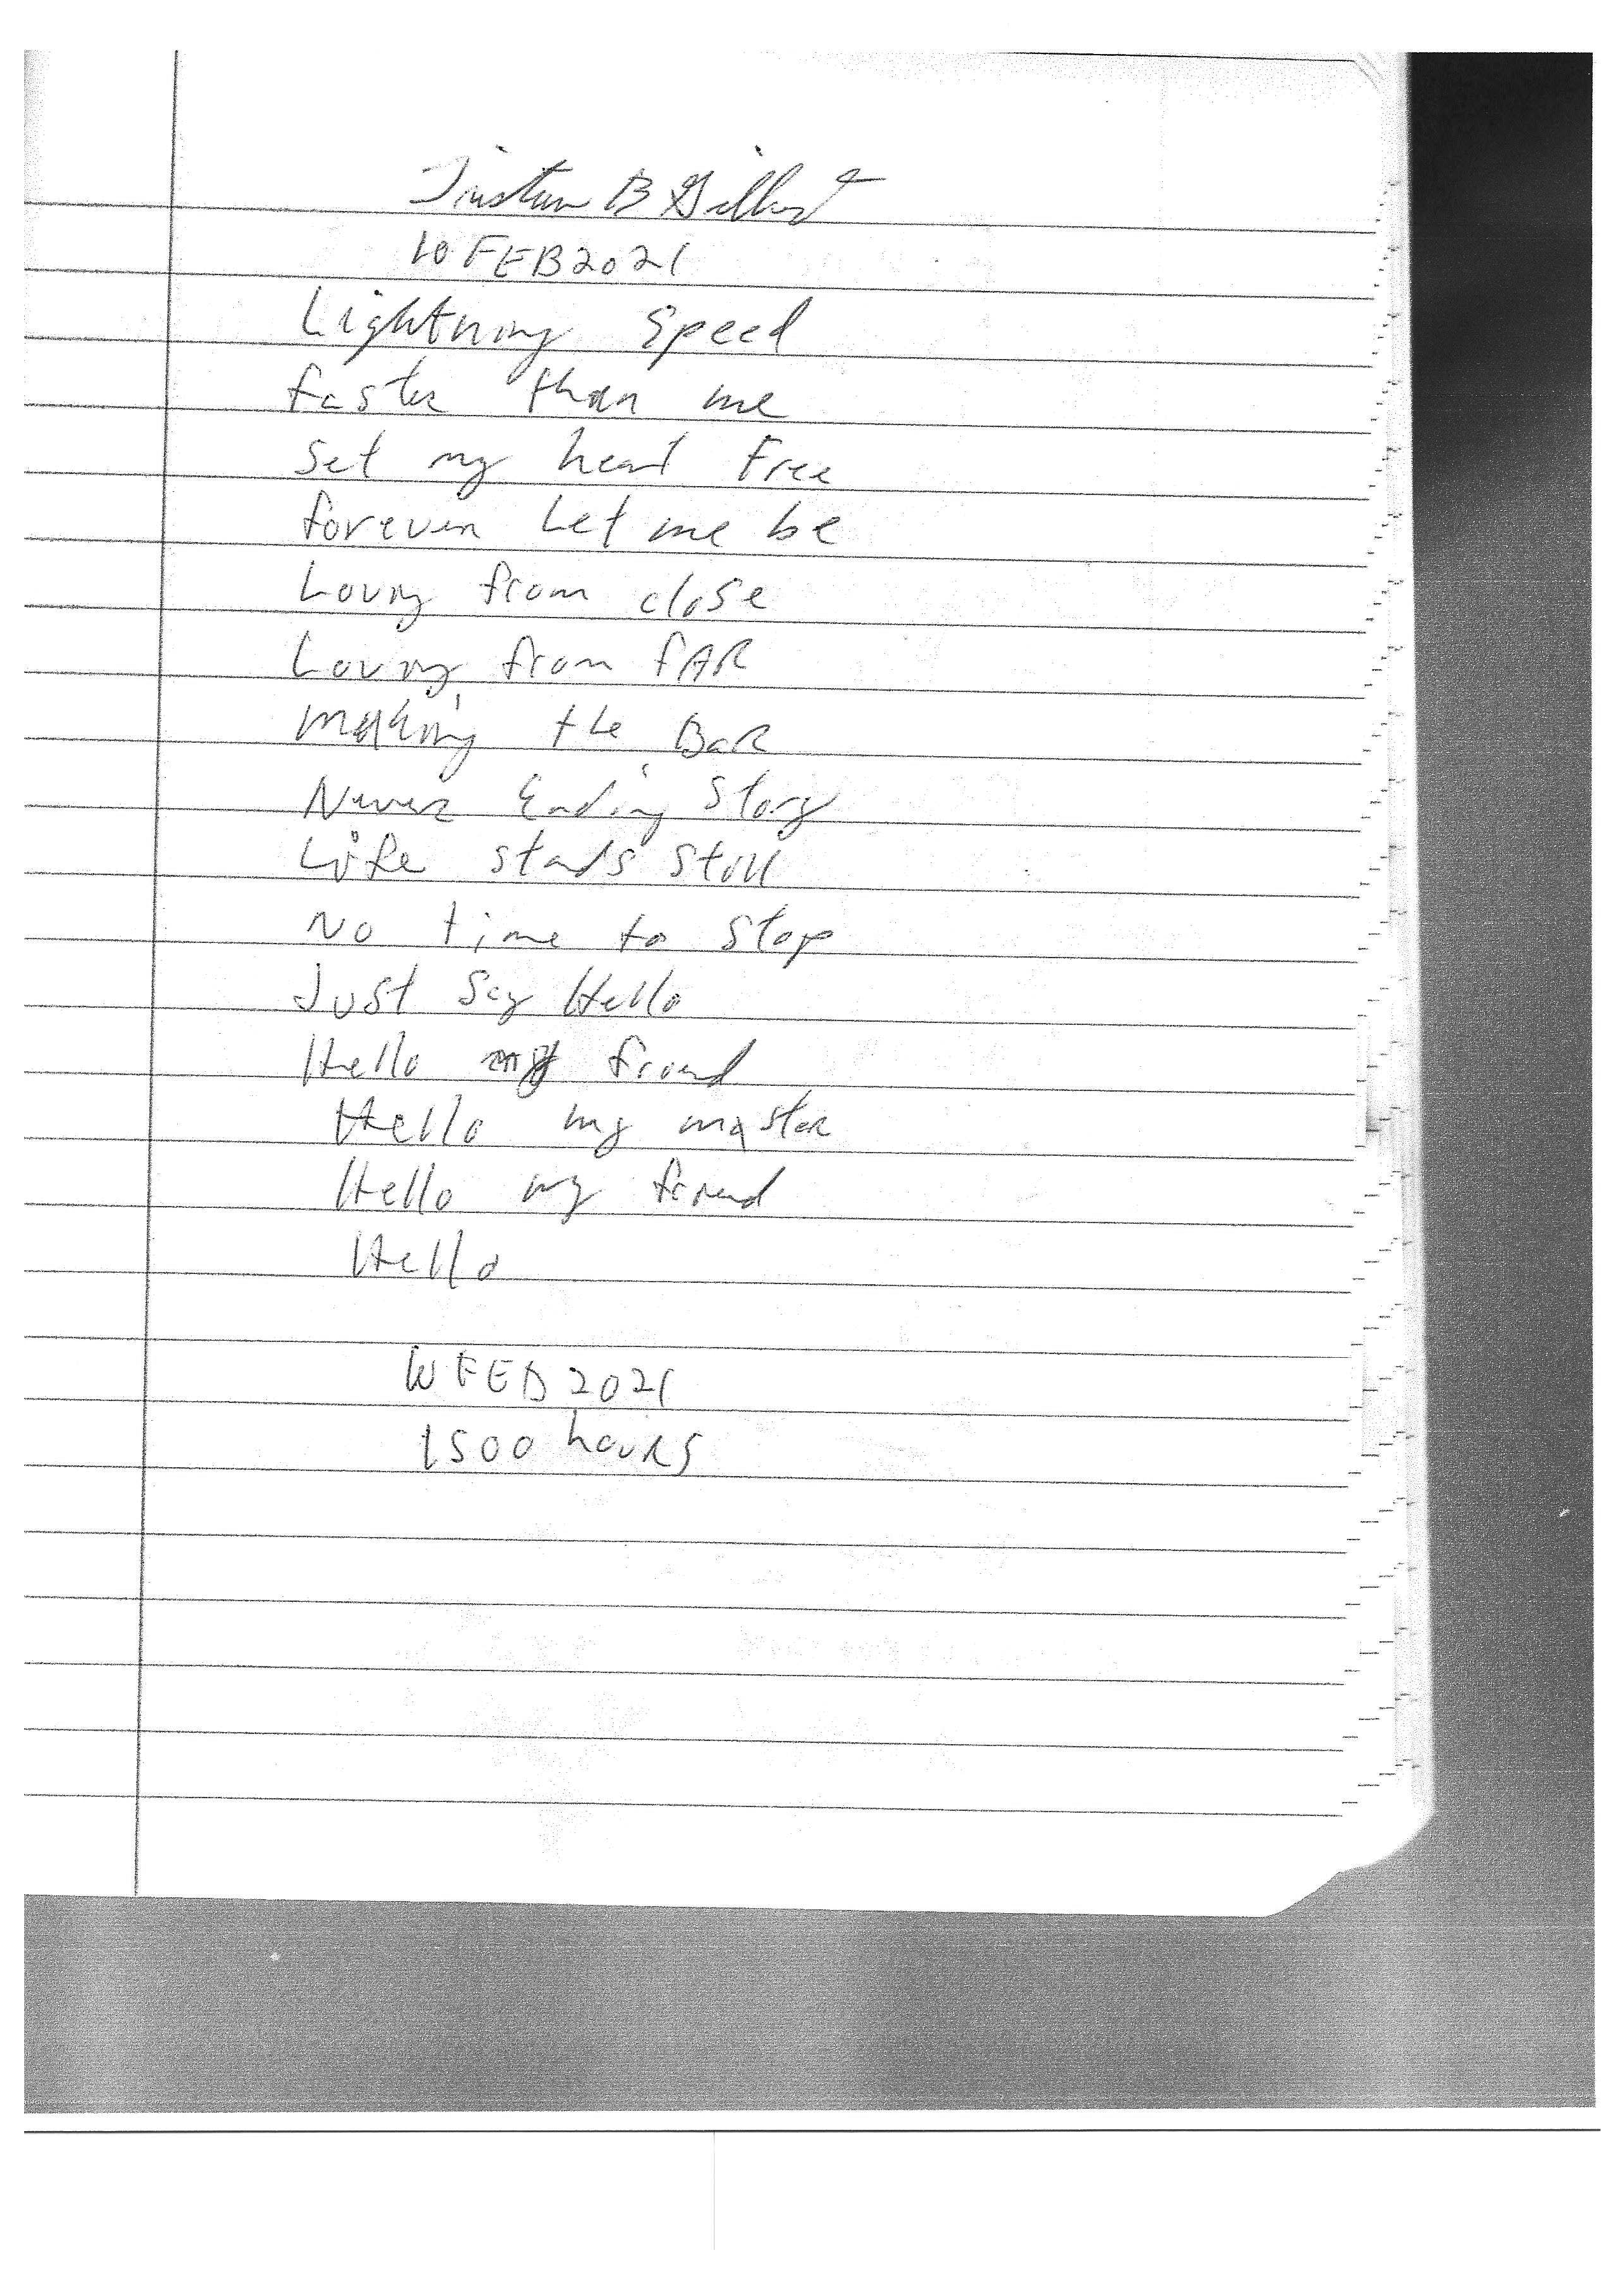 Tristan B Gilbert
10 FEB 2021
Lightning Speed
faster than me
Set my heart Free
forever Let me be
Loving from close
Loving from fAR
making the BaR
Never Ending Story
Life stands still
No time to Stop
Just Say Hello
Hello my friend
Hello my master
Hello my friend
Hello
10 FEB 2021
1500 houRS